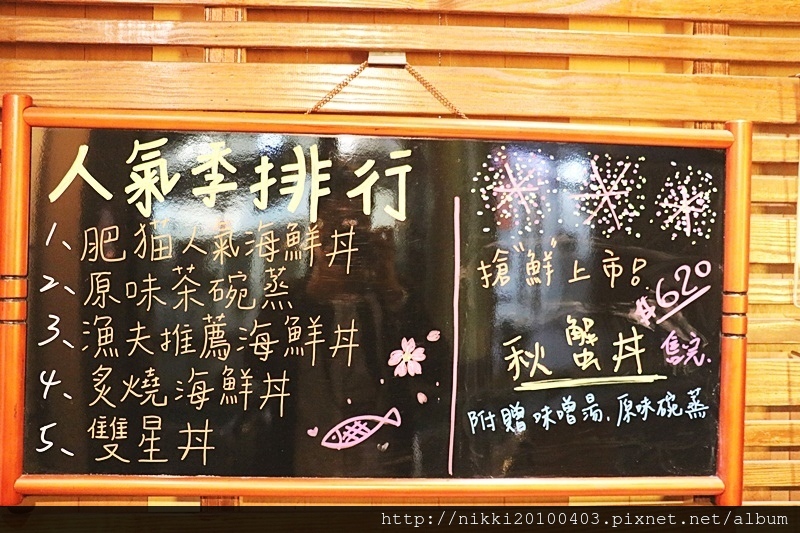 人氣季排行
1、肥猫人氣海鮮丼
2、原味茶碗蒸
3、漁夫推薦海鮮丼
4、炙燒海鮮丼
5、雙星丼
搶"鮮"上市!
$620
秋蟹丼 售完
附贈味噌湯、原味碗蒸
http://nikki20100403.pixnet.net/album